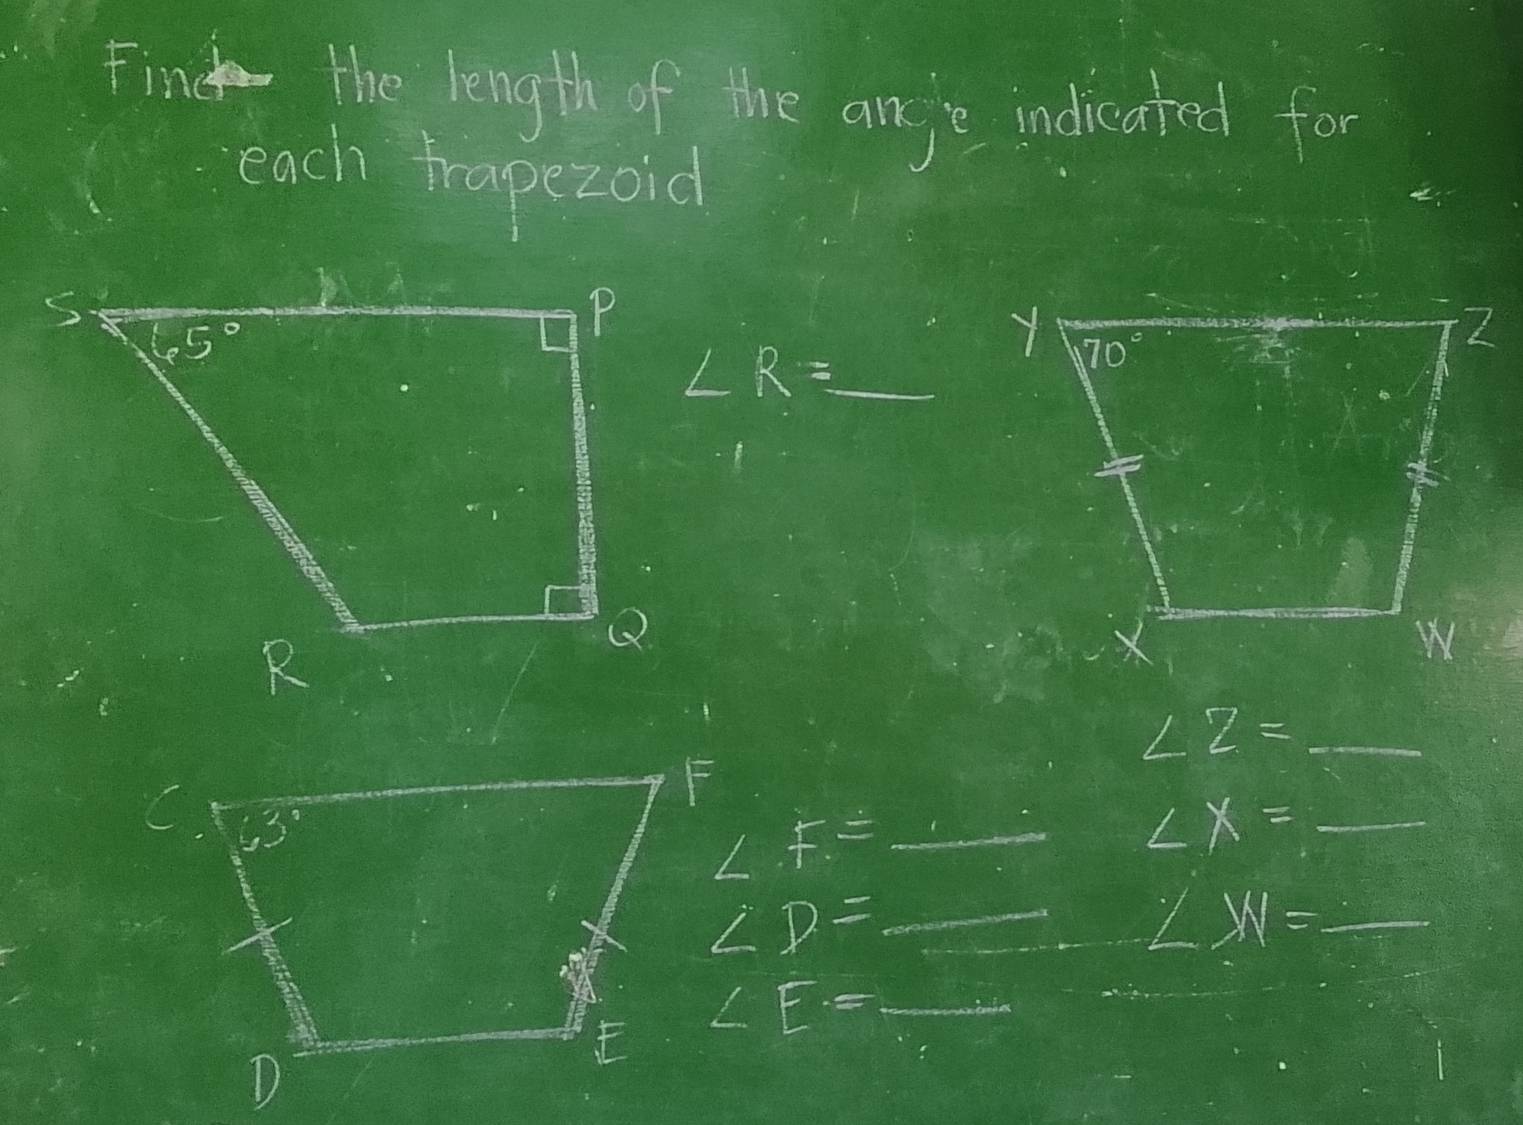 Find the length of the angle indicated for
each trapezoid
S
65°
P
∠ R = ___
R
Q
Y
70°
Z
X
W
∠ Z = ___
∠ X = ___
∠ W = ___
C
63°
F
D
E
∠ F = ___
∠ D = ___
∠ E = ___